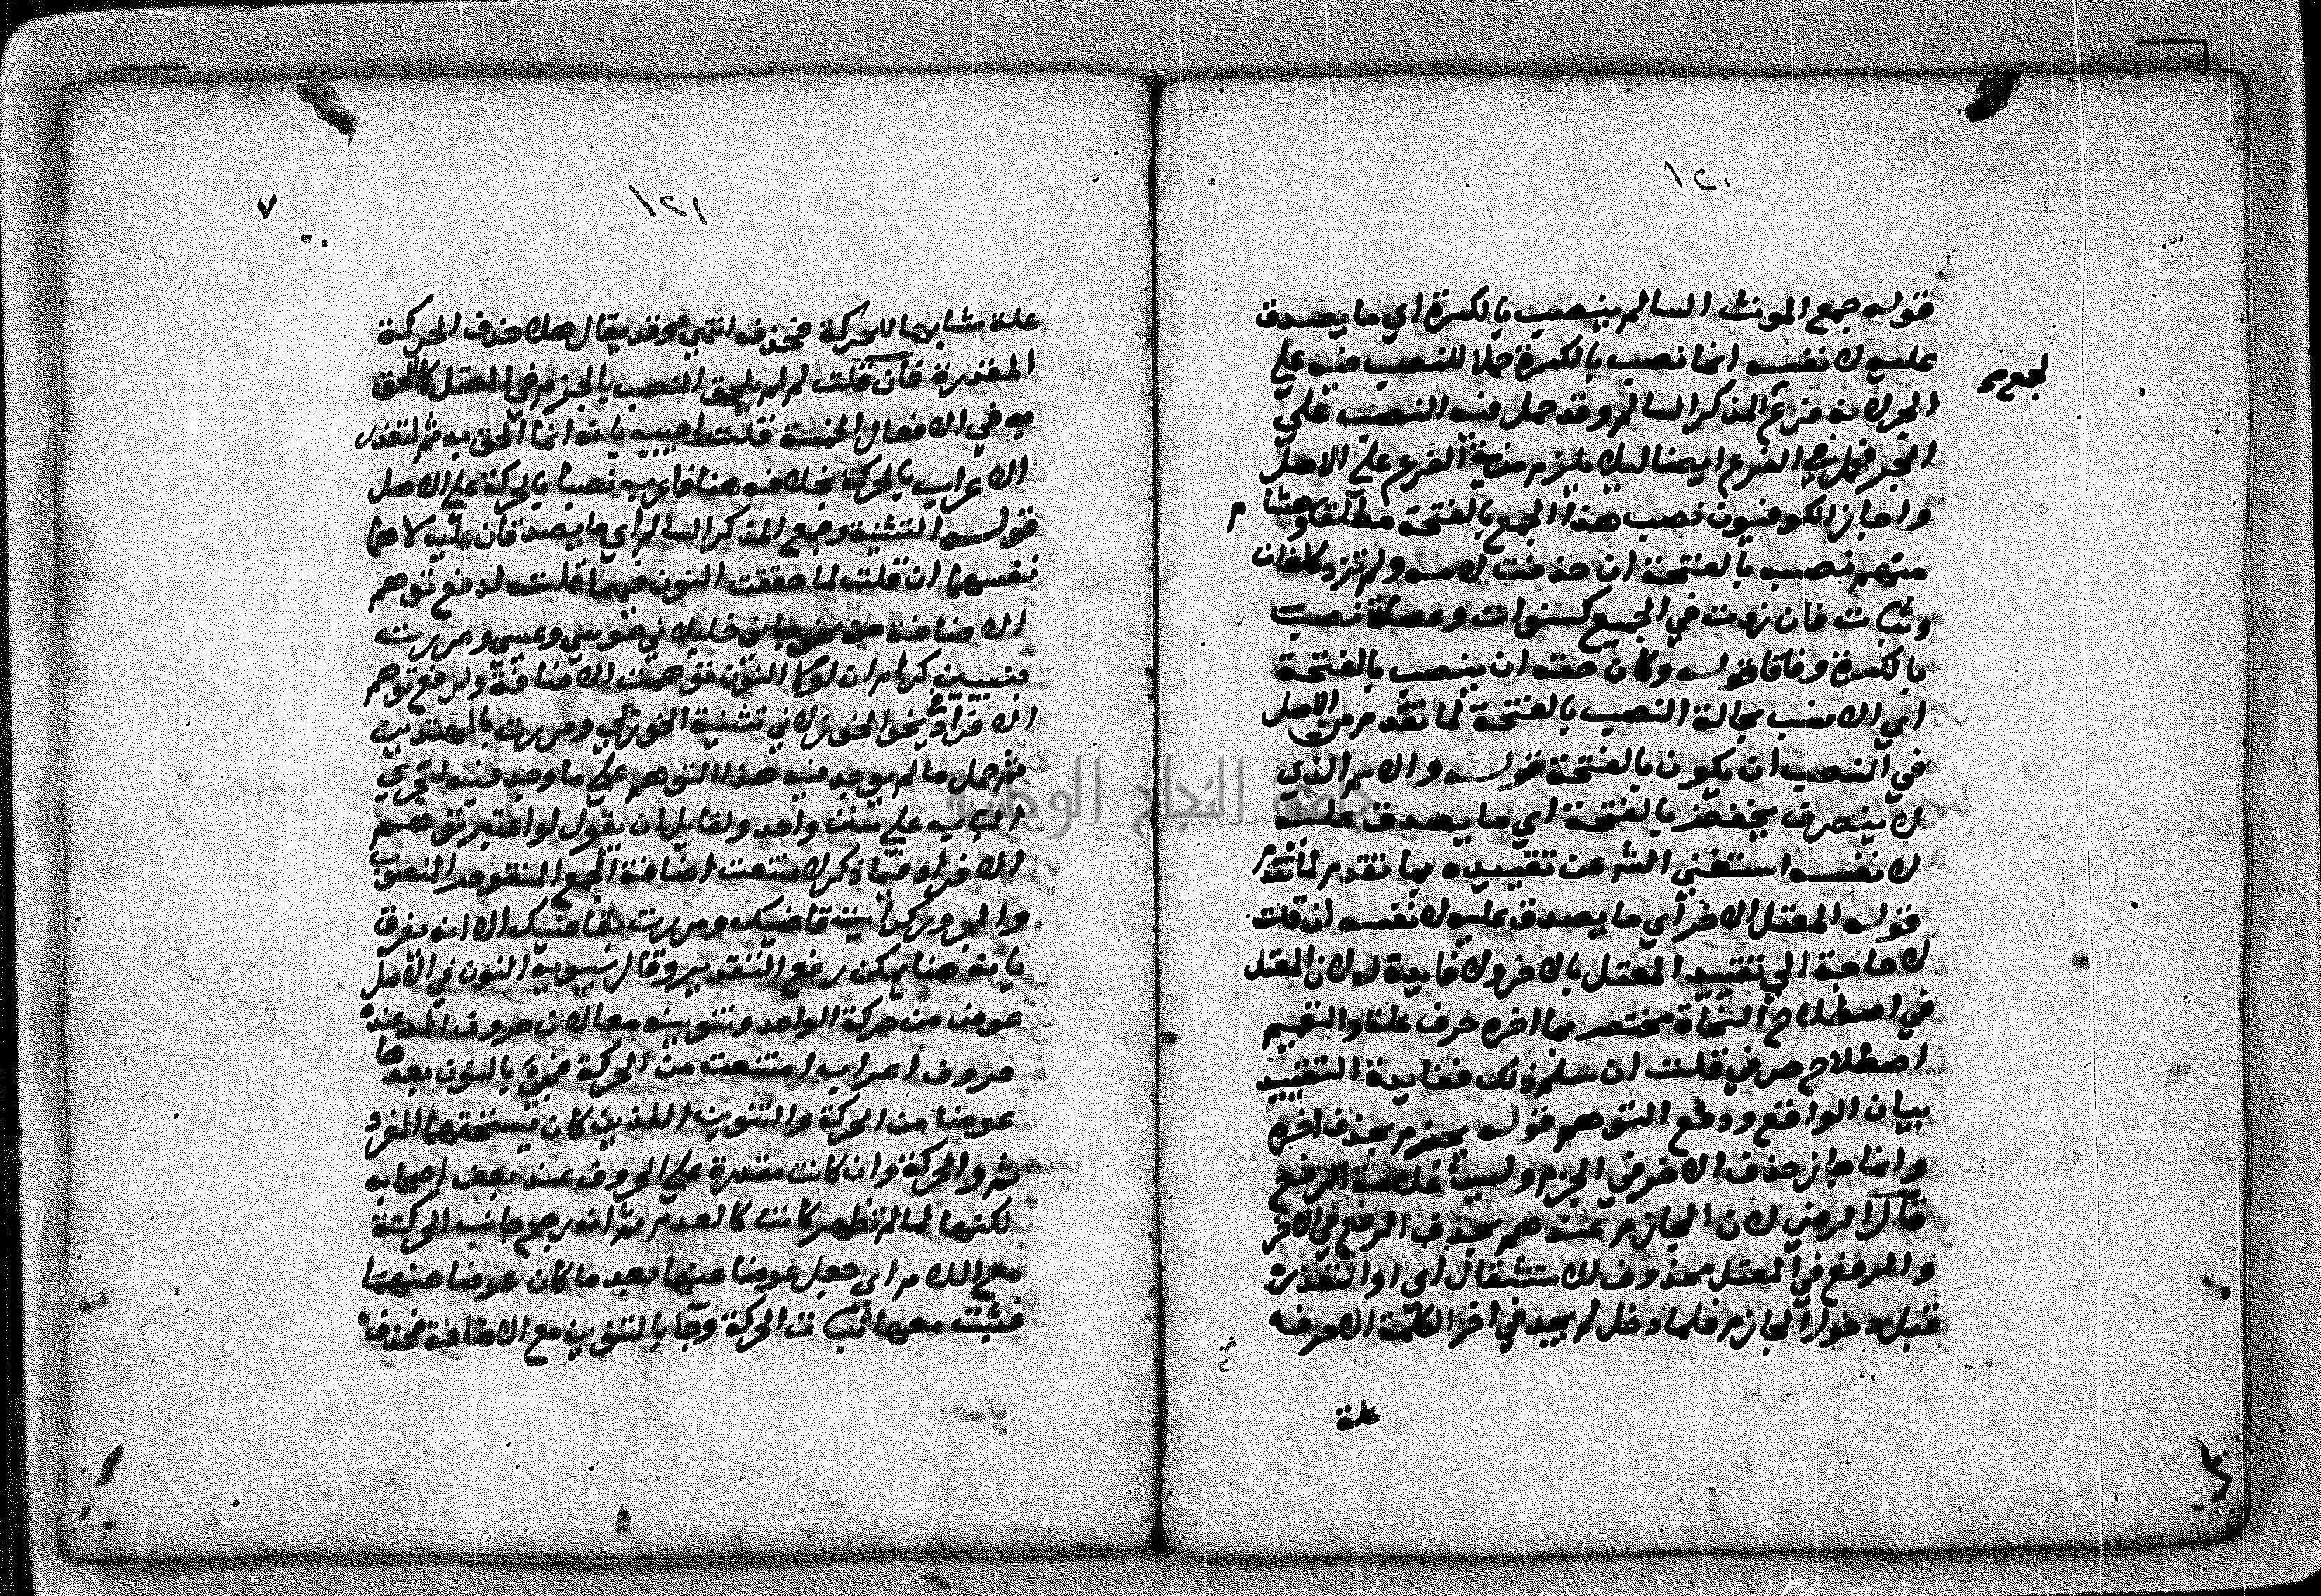 ١٢٠
قوله جمع المونث السالم ينصب بالكسرة اي ما يصدق
عليه لا نفسه انما نصب بالكسرة حملا للنصب منه علي
الجر لانه فرع المذكر السالم وقد حمل فيه النصب علي
الجر فحمل في الفرع ايضا ليلا يلزم مزية الفرع علي الاصل
لجمع صح
واجاز الكوفيون نصب هذا الجمع بالفتحة مطلقا وهشام
منهم نصبه بالفتحة ان حذفت لامه ولم ترد كلغات
وثبات فان ردت في الجمع كسنوات وعضاة نصب
بالكسرة وفاقا قوله وكان حقه ان ينصب بالفتحة
اي الانسب بحالة النصب بالفتحة لما تقدم من الاصل
في النصب ان يكون بالفتحة قوله والاسم الذي
لا ينصرف يخفض بالفتحة اي ما يصدق عليه
لا نفسه استغني الش عن تقييده بما تقدم لما تقدم
قوله المعتل الاخر اي ما يصدق عليه لا نفسه ان قلت
لا حاجة الي تقييد المعتل بالاخر ولا فايدة له لان المعتل
في اصطلاح النحاة مختصر بما اخره حرف علة والتعميم
اصطلاح صرفي قلت ان سلم ذلك ففايدة التقييد
بيان الواقع ودفع التوهم قوله يجزم بحذف اخره
وانما جاز حذف الاخر في الجزم وليس علامة الرفع
قال الرضي لان الجازم عندهم يحذف الرفع في الاخر
والرفع في المعتل محذوف للاستثقال اي او التعذر
قبل دخول الجازم فلما دخل لم يجد في اخر الكلمة الا حرف
علة
١٢١
٧
علة مشابها للحركة فحذفه انتهي وقد يقال هلا حذف الحركة
المقدرة فان قلت لم لم يلحق النصب بالجزم في المعتل كما لحق
به في الافعال الخمسة قلت اجيب بانه انما الحق به ثم لتعذر
الاعراب بالحركة بخلافه هنا فاعرب نصبا بالحركة علي الاصل
قوله التثنية وجمع المذكر السالم اي ما يصدقان عليه لا هما
نفسهما ان قلت لما حققت النون فيهما قلت لدفع توهم
الاضافة من نحو جاني خليلان موسي وعيسي ومررت
ببنين كرام ان لولا النون توهمت الاضافة ولدفع توهم
الافراد في نحو الخوزلان في تثنية الخوزلي ومررت بالمهتدين
ثم حمل ما لم يوجد فيه هذا التوهم علي ما وجد فيه ليجري
الباب علي سنن واحد ولقايل ان يقول لو اعتبر توهم
الافراد فيما ذكر لامتنعت اضافة الجمع المنقوص المنصوب
والمجرور كرايت قاضيك ومررت بقاضيك الا انه يفرق
بانه هنا يمكن رفع التقدير وقال سيبويه النون في الاصل
عوض من حركة الواحد وتنوينه معا لان حروف المد عنده
حروف اعراب امتنعت من الحركة فجي بالنون بعدها
عوضا من الحركة والتنوين اللذين كان يستحقهما المفرد
ثم والحركة وان كانت مقدرة علي الحروف عند بعض اصحابه
لكنها لما لم تظهر كانت كالعدم ثم انه رجح جانب الحركة
مع اللام اي جعل عوضا منها بعد ما كان عوضا منهما
فثبت معها ثبات الحركة وجا بالتنوين مع الاضافة فحذف